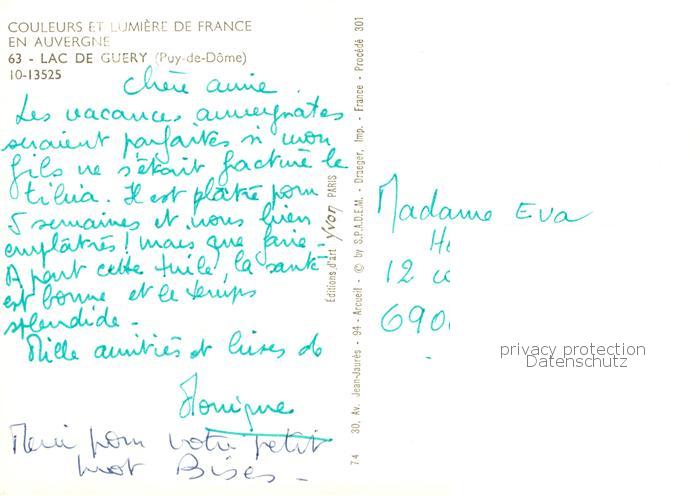 COULEURS ET LUMIÈRE DE FRANCE
EN AUVERGNE
63 - LAC DE GUERY (Puy-de-Dôme)
10-13525
Chère amie
Les vacances auvergnates
seraient parfaites si mon
fils ne s'était facturé le
tibia. Il est plâtré pour
5 semaines et nous bien
emplâtrés ! mais que faire -
A part cette tuile, la santé
est bonne et le temps
splendide -
Mille amitiés et bises de
Monique
Merci pour votre petit
mot Bises -
Editions d'art Yvon PARIS
74 30, Av. Jean-Jaurès - 94 - Arcueil - © by S.P.A.D.E.M. - Draeger, Imp. - France - Procédé 301
Madame Eva
12
690
privacy protection
Datenschutz